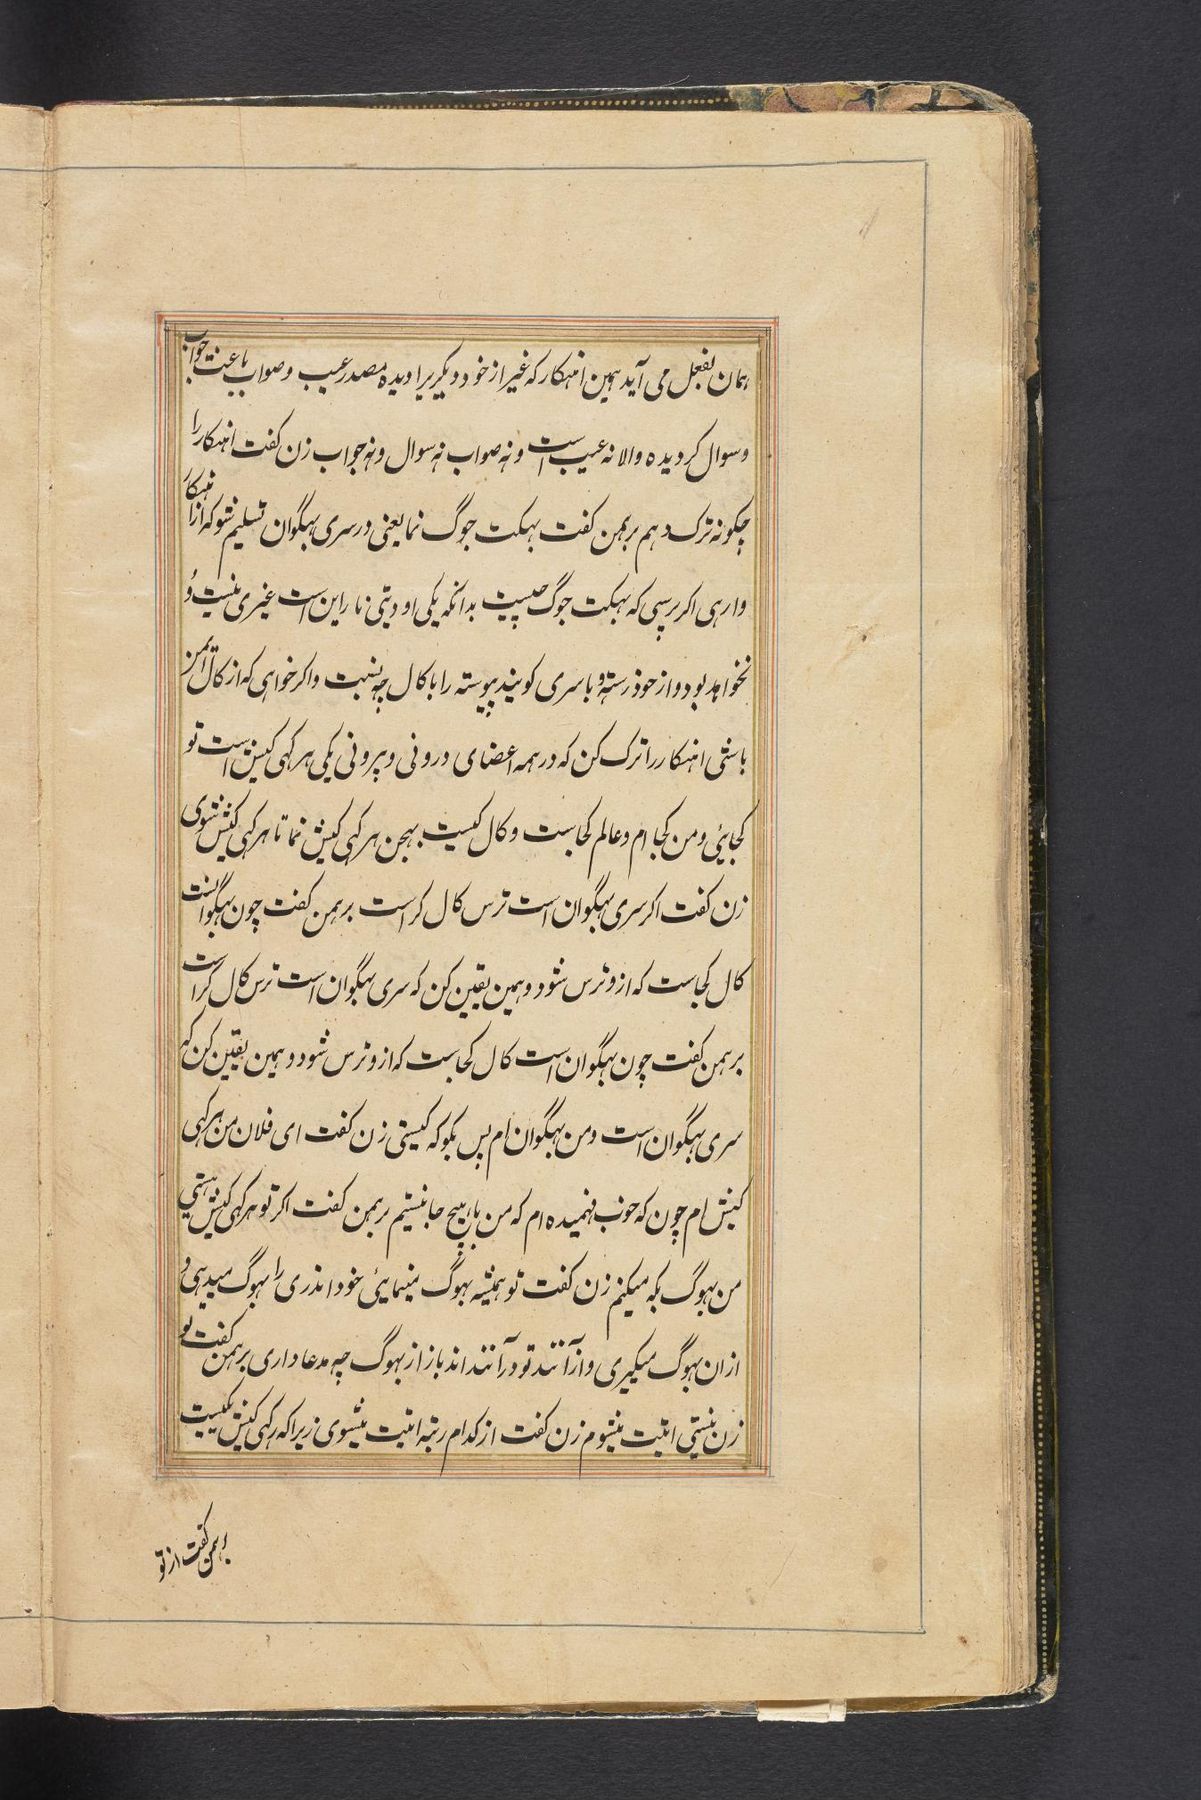 همان بفعل می آید همین انهکار که غیر از خود دیگریرا دیده مصدر عیب و صواب باعث جواب
و سوال کردیده والا نه عیب است و نه صواب نه سوال و نه جواب زن کفت انهکار را
چکونه ترک دهم برهمن کفت بهکت جوگ نما یعنی در سری بهگوان تسلیم شو که از انهکار
وارهی اکر پرسی که بهکت جوگ چیست بدانکه یکی اودیتی ناراین است غیری نیست و
نخواهد بود و از خود رسته و با سری کوبیند پیوسته را با کال چه نسبت و اکر خواهی که از کال ایمن
باشی انهکار را ترک کن که در همه اعضای درونی و بیرونی یکی هر کهی کیش است تو
کجایئی و من کجا ام و عالم کجاست و کال کیست بهجن هر کهی کیش نما تا هر کهی کیش شوی
زن کفت اکر سری بهگوان است ترس کال کراست برهمن کفت چون بهگوانست
کال کجاست که ازو ترس شود و همین یقین کن که سری بهگوان است ترس کال کراست
برهمن کفت چون بهگوان است کال کجاست که ازو ترس شود و همین یقین کن که
سری بهگوان است و من بهگوان ام پس بکو که کیستی زن کفت ای فلان من هر کهی
کیش ام چون که خوب فهمیده ام که من باب هیچ جا نیستیم برهمن کفت اکر تو هر کهی کیش هستی
من بهوگ بکه میکنم زن کفت تو همیشه بهوگ مینمایئی خود اندری را بهوگ میدهی و
ازان بهوگ میکیری و از آنند تو در آنند اند باز از بهوگ چه مدعا داری برهمن کفت تو
زن نیستی اتیت میشوم زن کفت از کدام رتبه اتیت میشوی زیرا که هر کهی کیش یکیست
برهمن کفت از تو